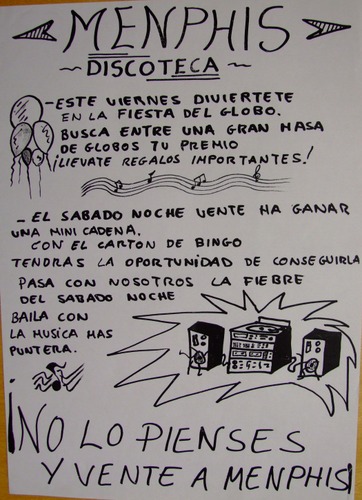 MENPHIS
~DISCOTECA~
-ESTE VIERNES DIVIERTETE
EN LA FIESTA DEL GLOBO.
BUSCA ENTRE UNA GRAN MASA
DE GLOBOS TU PREMIO
¡LIEVATE REGALOS IMPORTANTES!
- EL SABADO NOCHE VENTE HA GANAR
UNA MINI CADENA.
CON EL CARTON DE BINGO
TENDRAS LA OPORTUNIDAD DE CONSEGUIRLA
PASA CON NOSOTROS LA FIEBRE
DEL SABADO NOCHE
BAILA CON
LA MUSICA MAS
PUNTERA.
¡NO LO PIENSES
Y VENTE A MENPHIS!